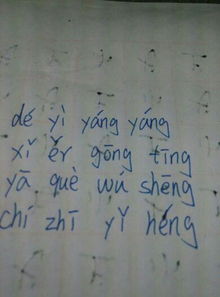 dé yì yáng yáng
xǐ ěr gōng tīng
yā què wú shēng
chí zhī yǐ héng